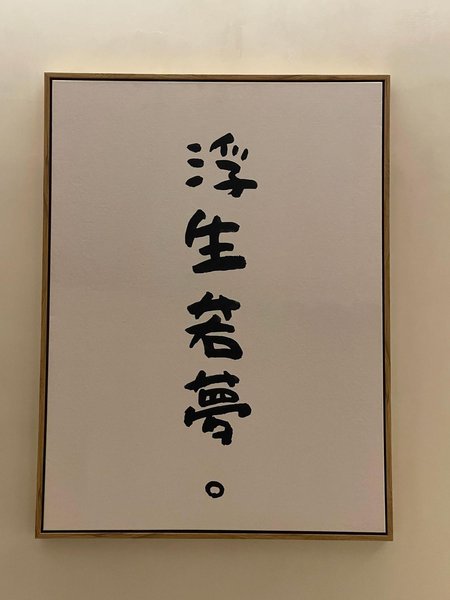 浮生若夢。